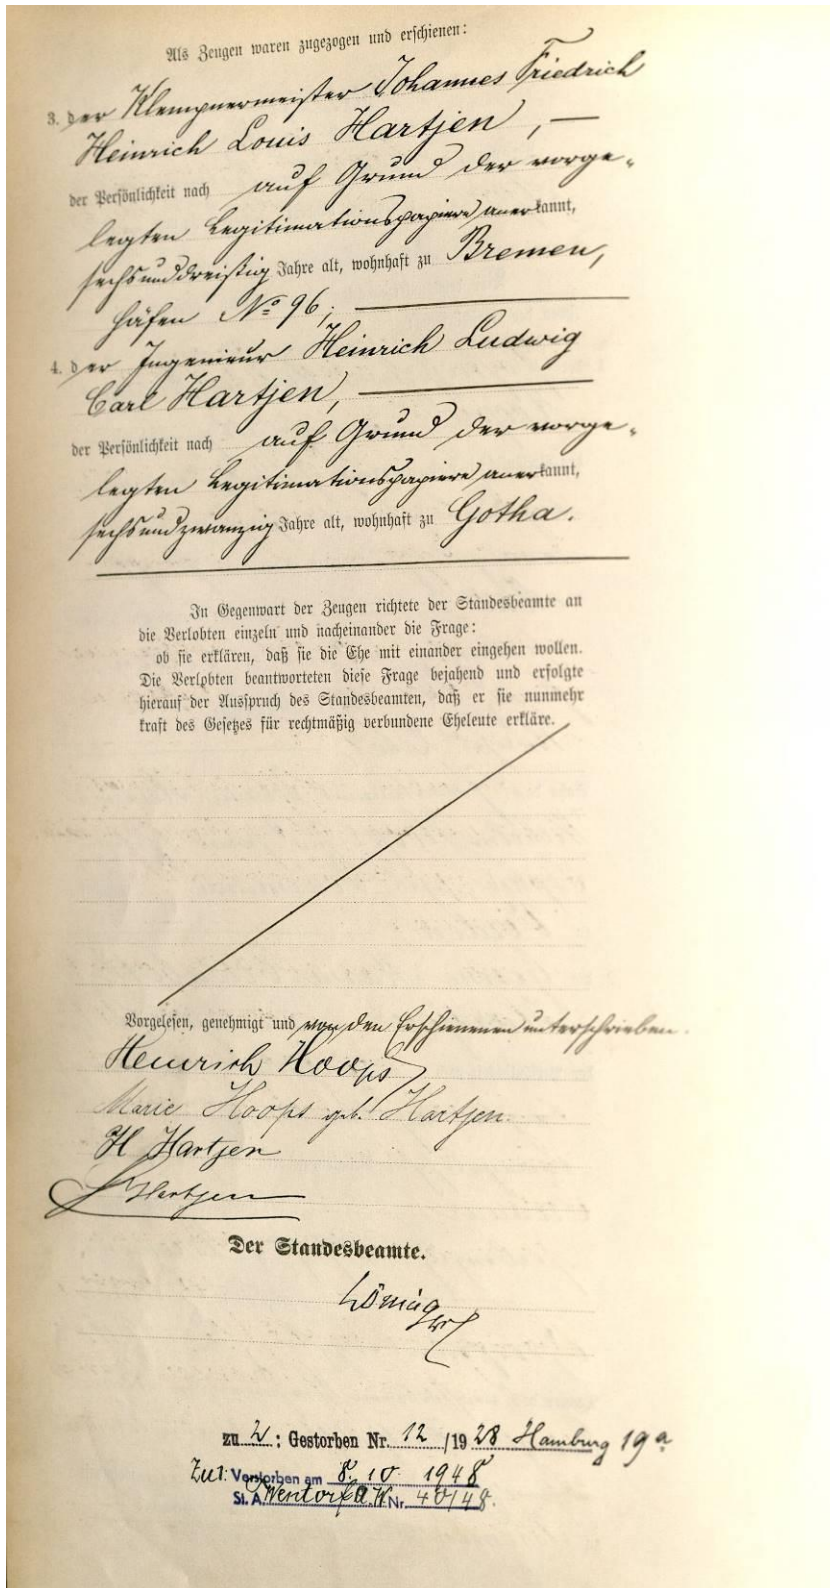 Als Zeugen waren zugezogen und erschienen:
3. der Klempnermeister Johannes Friedrich
Heinrich Louis Hartjen, —
der Persönlichkeit nach auf Grund der vorge-
legten Legitimationspapiere anerkannt,
sechsunddreißig Jahre alt, wohnhaft zu Bremen,
Häfen No 96;
4. der Ingenieur Heinrich Ludwig
Carl Hartjen,
der Persönlichkeit nach auf Grund der vorge-
legten Legitimationspapiere anerkannt,
sechsundzwanzig Jahre alt, wohnhaft zu Gotha.
In Gegenwart der Zeugen richtete der Standesbeamte an
die Verlobten einzeln und nacheinander die Frage:
ob sie erklären, daß sie die Ehe mit einander eingehen wollen.
Die Verlobten beantworteten diese Frage bejahend und erfolgte
hierauf der Ausspruch des Standesbeamten, daß er sie nunmehr
kraft des Gesetzes für rechtmäßig verbundene Eheleute erkläre.
Vorgelesen, genehmigt und von den Erschienenen unterschrieben.
Heinrich Hoops
Marie Hoops geb. Hartjen.
H Hartjen
L Hartjen
Der Standesbeamte.
König
zu 2: Gestorben Nr. 12/1928 Hamburg 19a
Zu 1: Verstorben am 8. 10. 1948
St. A. Wentorf A.K. Nr. 40/48.